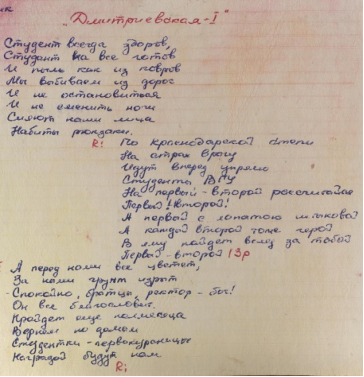 ик
"Дмитриевская-I"
Студент всегда здоров,
Студент на все готов
И пыль как из ковров
Мы выбиваем из дорог
И не остановиться
И не сменить ноги
Сияют наши лица
Набиты рюкзаки.
R: По Краснодарской степи
На страх врагу
Идут вперед упрямо
Студенты ВГУ
На первый-второй рассчитайся
Первый! Второй!
А первый с лопатою
А каждый второй тоже герой
В яму пойдет вслед за тобой
Первый-второй | 3р
А перед нами все цветет,
За нами грунт
- Спокойно, братцы, ректор - бог!
Он все благословит.
Пройдет еще полмесяца
Вернем по домам
Студентки-первокурсницы
Наградой будут нам
R: